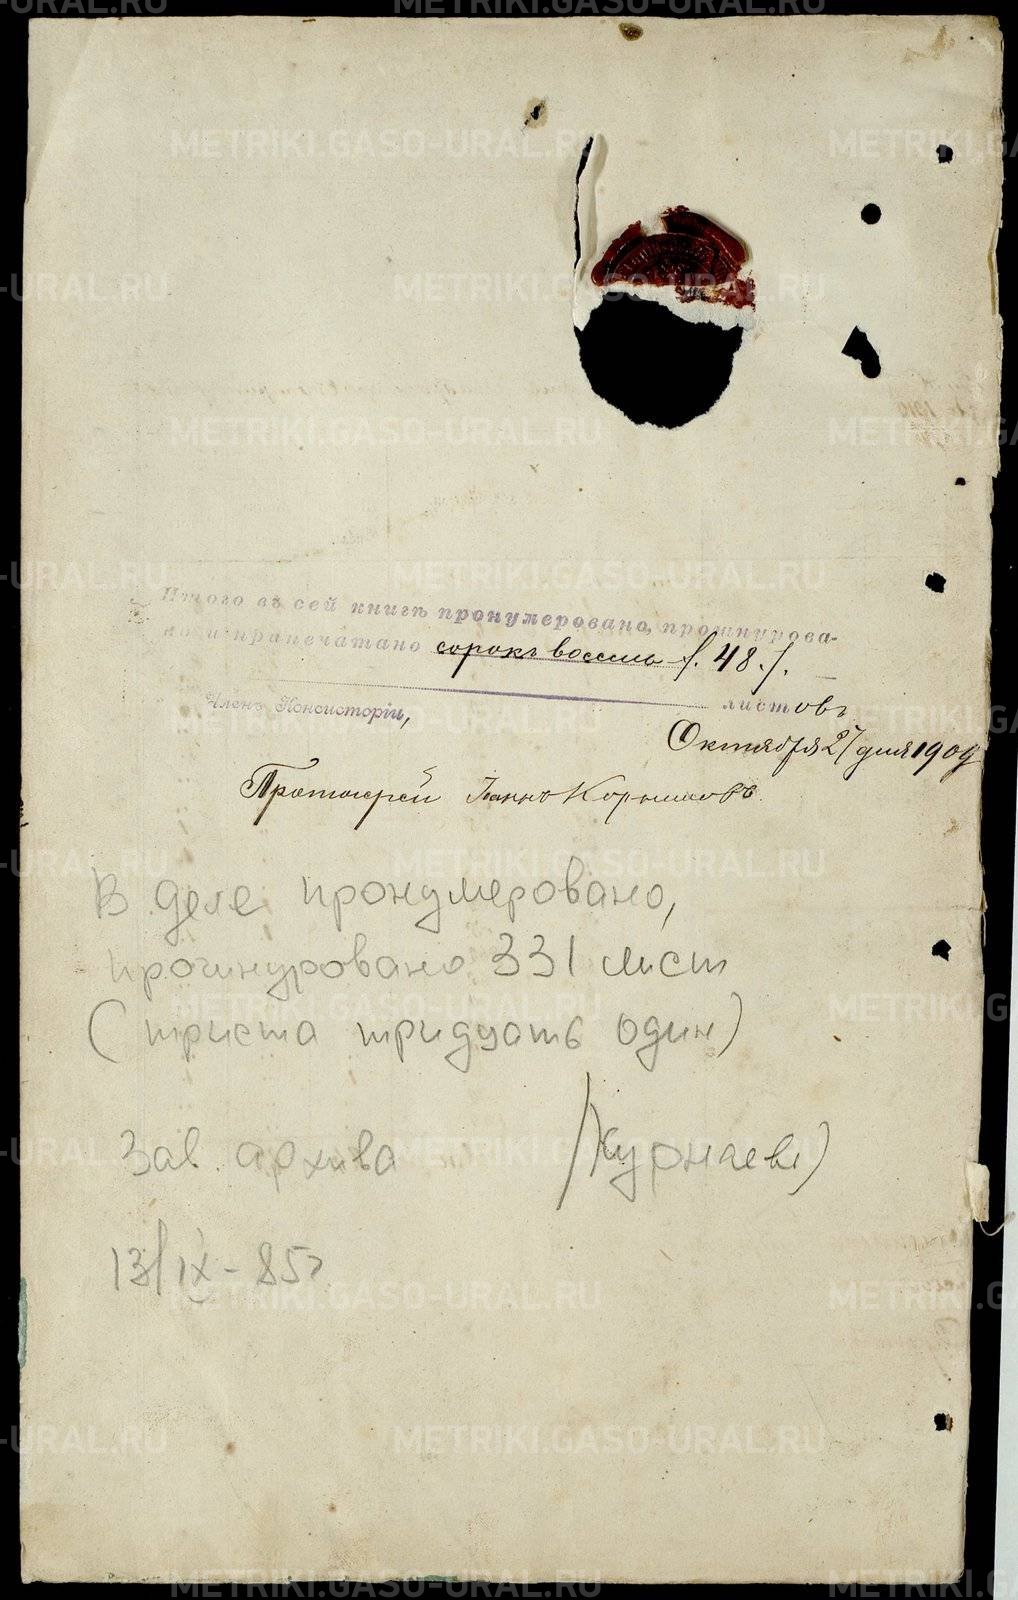 Итого въ сей книгѣ пронумеровано, прошнурова-
но и припечатано сорокъ восемь /.48./.
листовъ
Членъ Консисторіи,
Октября 27 дня 1909
Протоіерей Іоаннъ
В деле пронумеровано,
прошнуровано 331 лист
(триста тридцать один)
Зав. архива /Курнаева)
13/IX-85г
METRIKI.GASO-URAL.RU